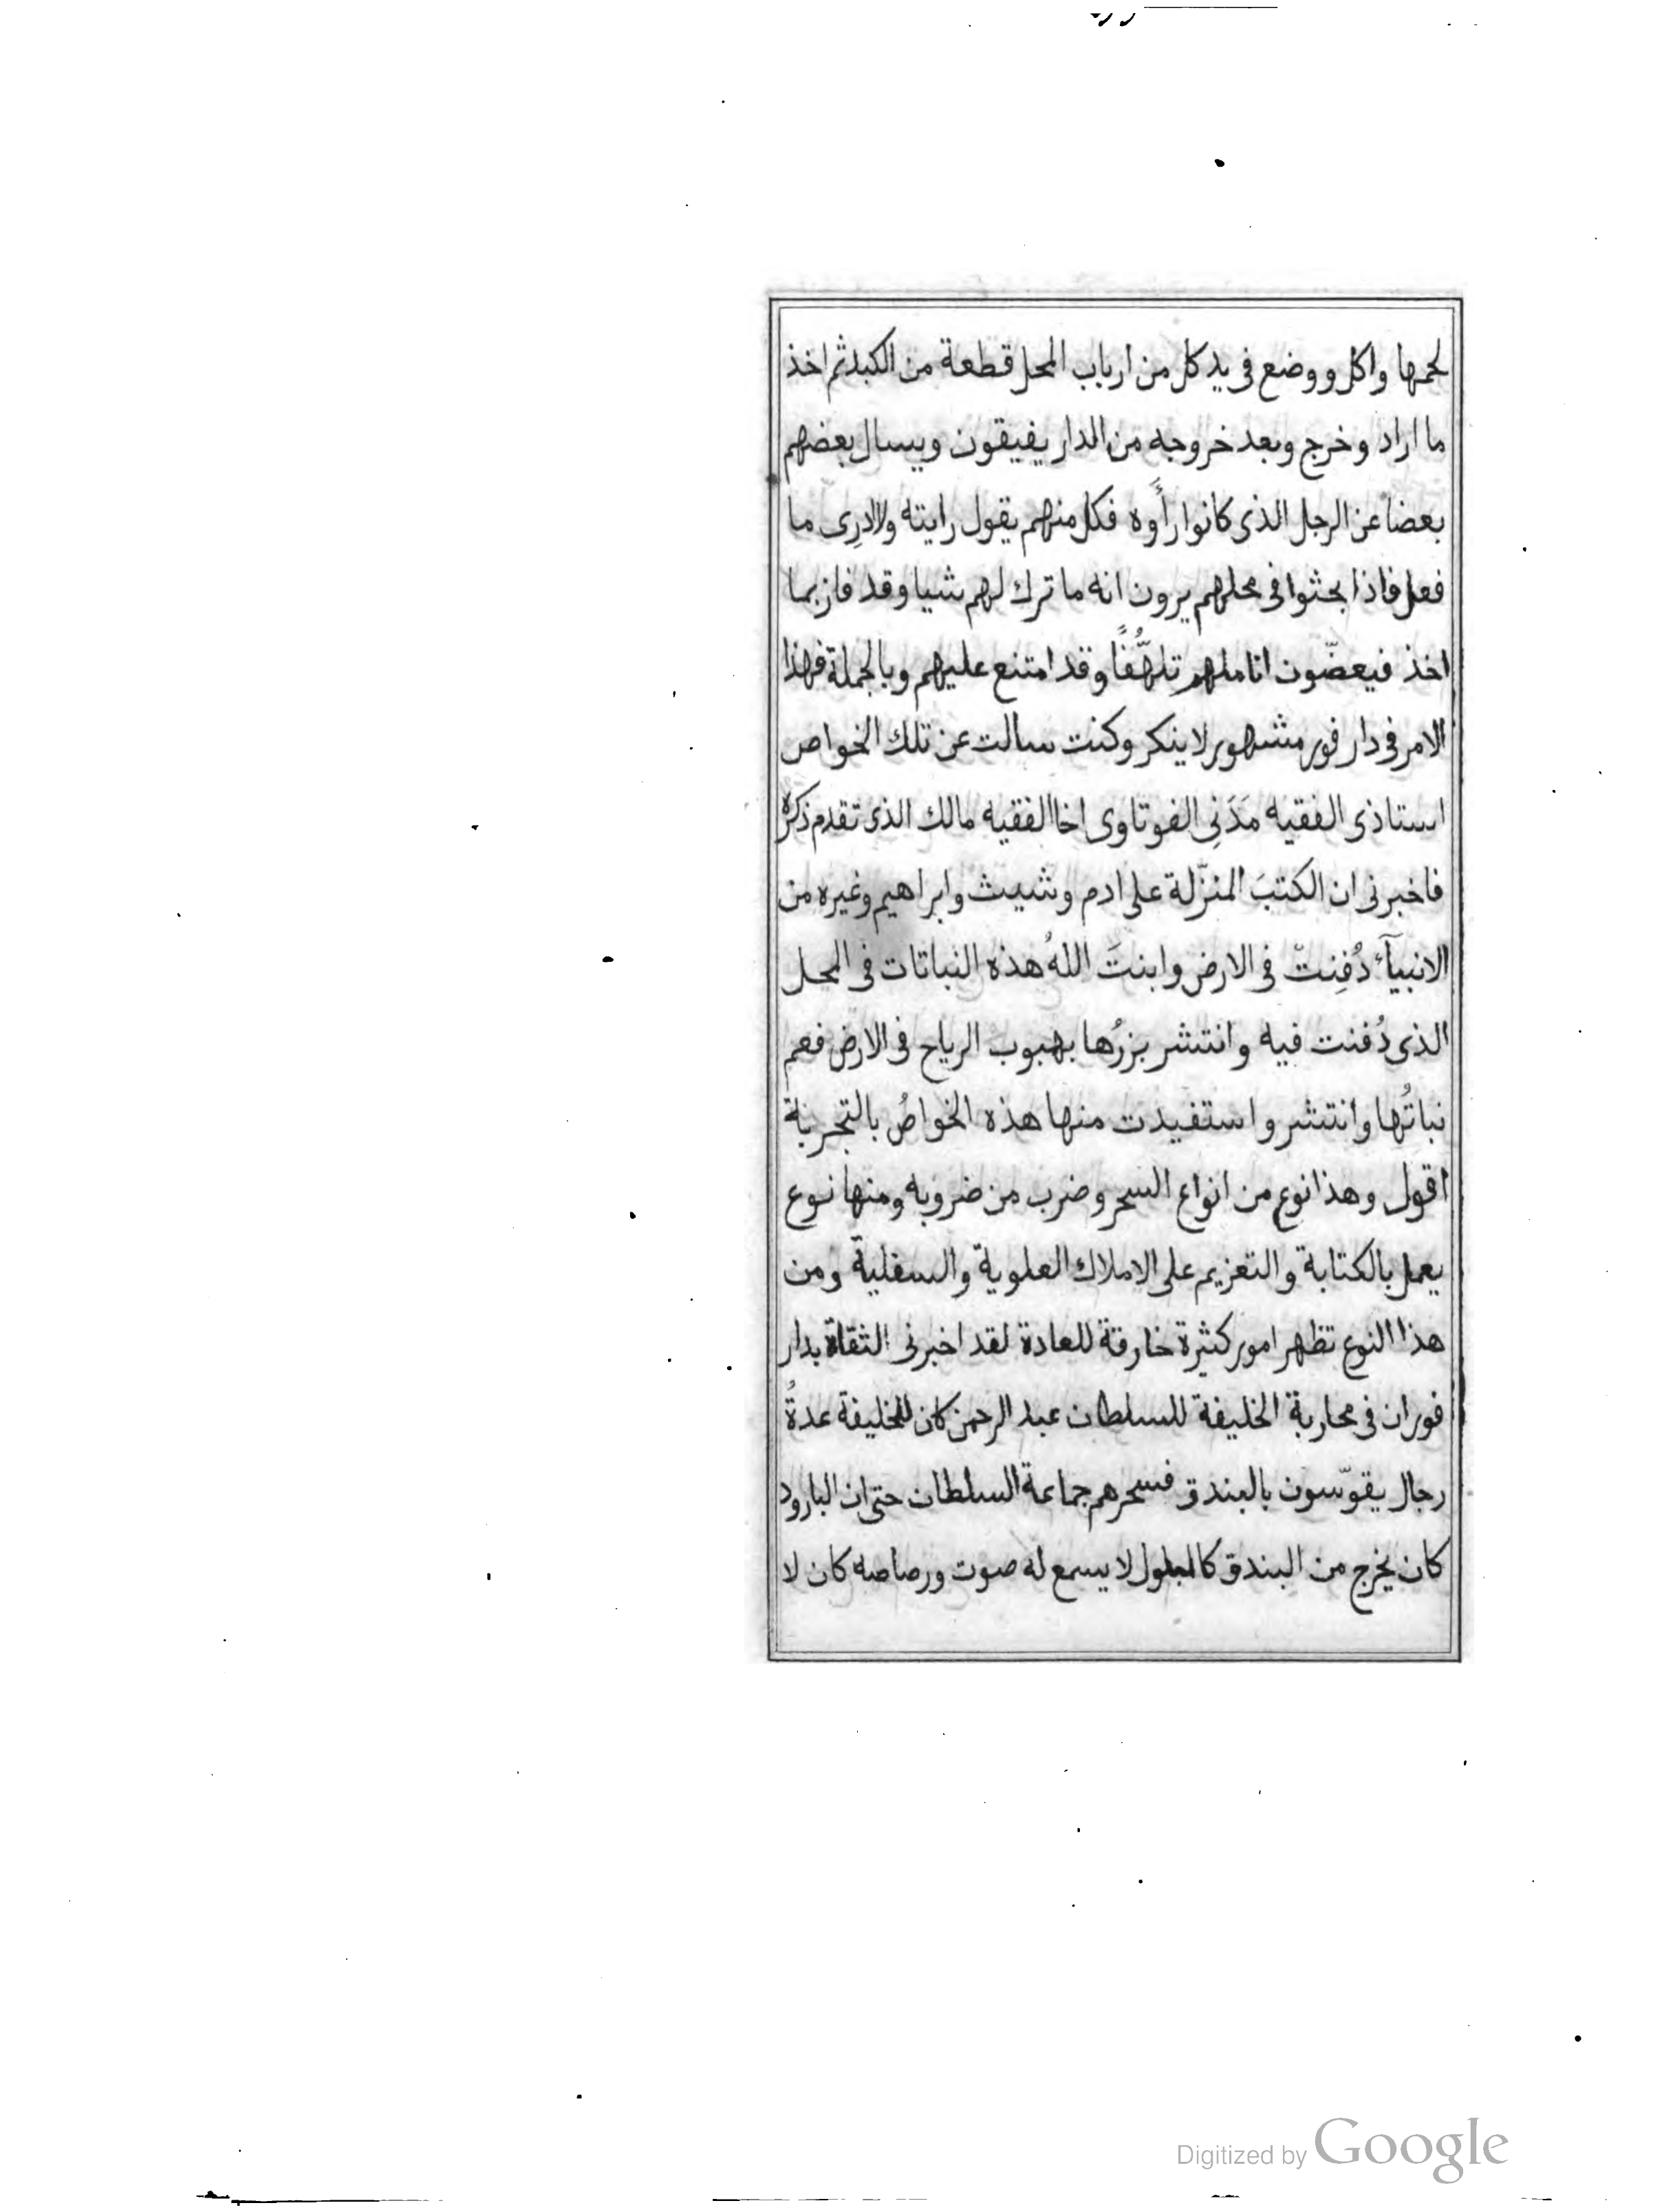 لحمها واكل ووضع فى يد كل من ارباب المحل قطعة من الكبد ثم اخذ
ما اراد وخرج وبعد خروجه من الدار يفيقون ويسال بعضهم
بعضا عن الرجل الذى كانوا رأوه فكل منهم يقول رايته ولاادرِى ما
فعل فاذا بحثوا فى محلهم يرون انه ما ترك لهم شيا وقد فاز بما
اخذ فيعضّون اناملهم تلهُّفًا وقد امتنع عليهم وبالجملة فهذا
الامر فى دار فور مشهور لا ينكر وكنت سالت عن تلك الخواص
استاذى الفقيه مَدَنِى الفوتاوى اخا الفقيه مالك الذى تقدم ذكره
فاخبرنى ان الكتبَ المنزّلة على ادم وشيث وابراهيم وغيره من
الانبيآء دُفِنتْ فى الارض وابنتَ اللهُ هذه النباتات فى المحل
الذى دُفنت فيه وانتشر بزرُها بهبوب الرياح فى الارض فعم
نباتُها وانتشر واستفيدت منها هذه الخواصُ بالتجربة
اقول وهذا نوع من انواع السحر وضرب من ضروبه ومنها نوع
يعمل بالكتابة والتعزيم على الاملاك العلوية والسفلية ومن
هذا النوع تظهر امور كثيرة خارقة للعادة لقد اخبرنى الثقاة بدار
فور ان فى محاربة الخليفة للسلطان عبد الرحمن كان للخليفة عدةُ
رجال يقوّسون بالبندق فسحرهم جماعة السلطان حتى ان البارود
كان يخرج من البندق كالمبلول لا يسمع له صوت ورصاصه كان لا
Digitized by Google